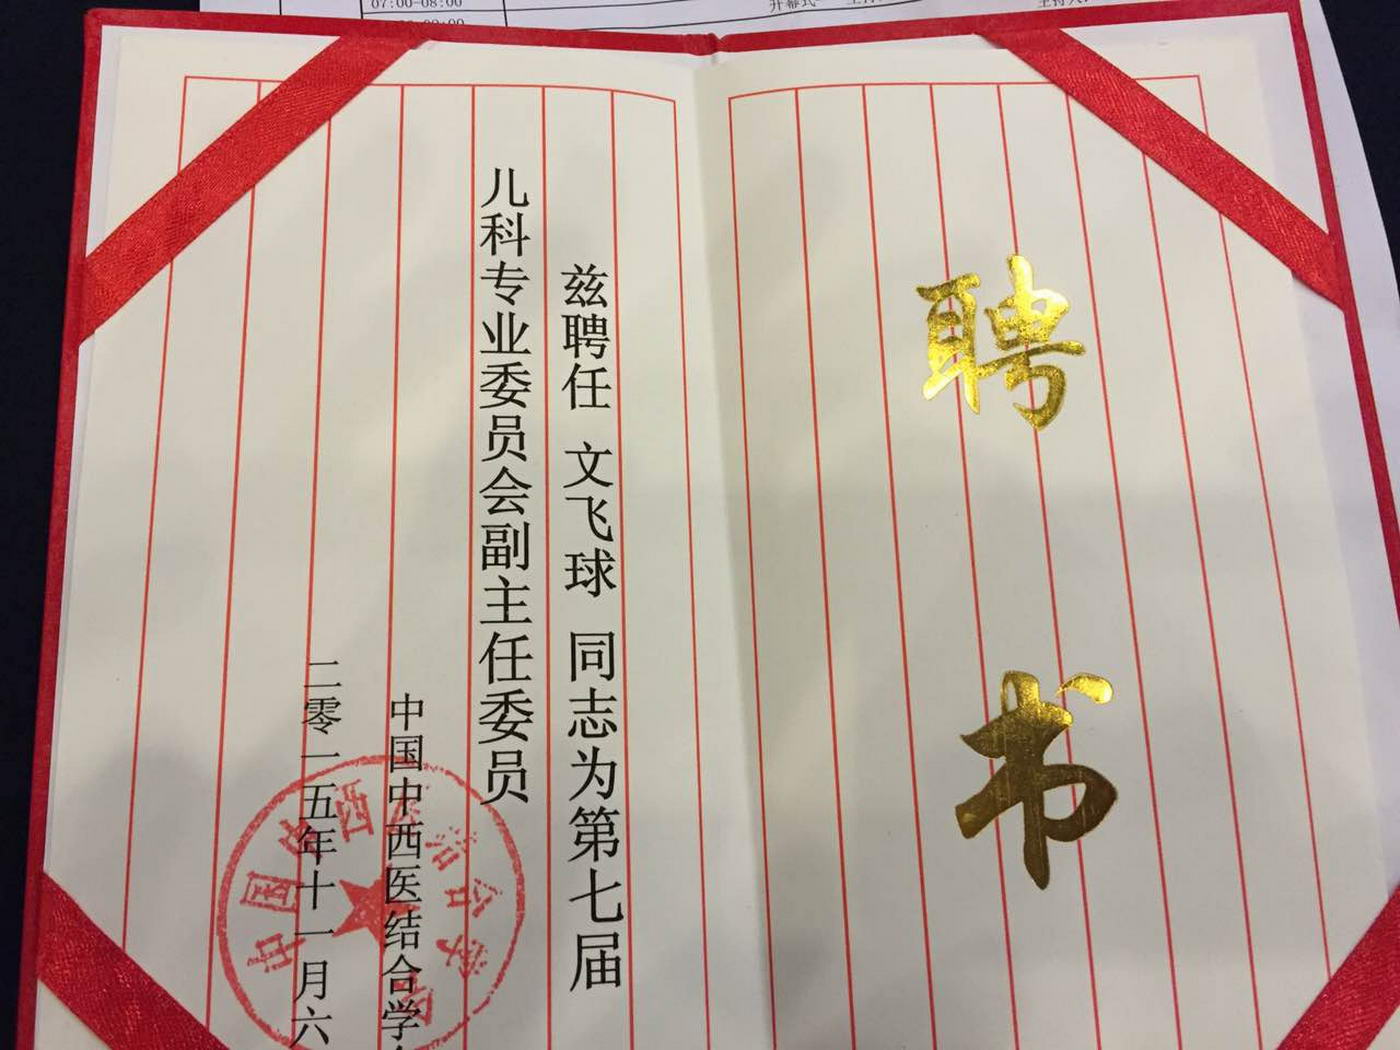 07:00-08:00
聘书
兹聘任 文飞球 同志为第七届
儿科专业委员会副主任委员
中国中西医结合学
二零一五年十一月六